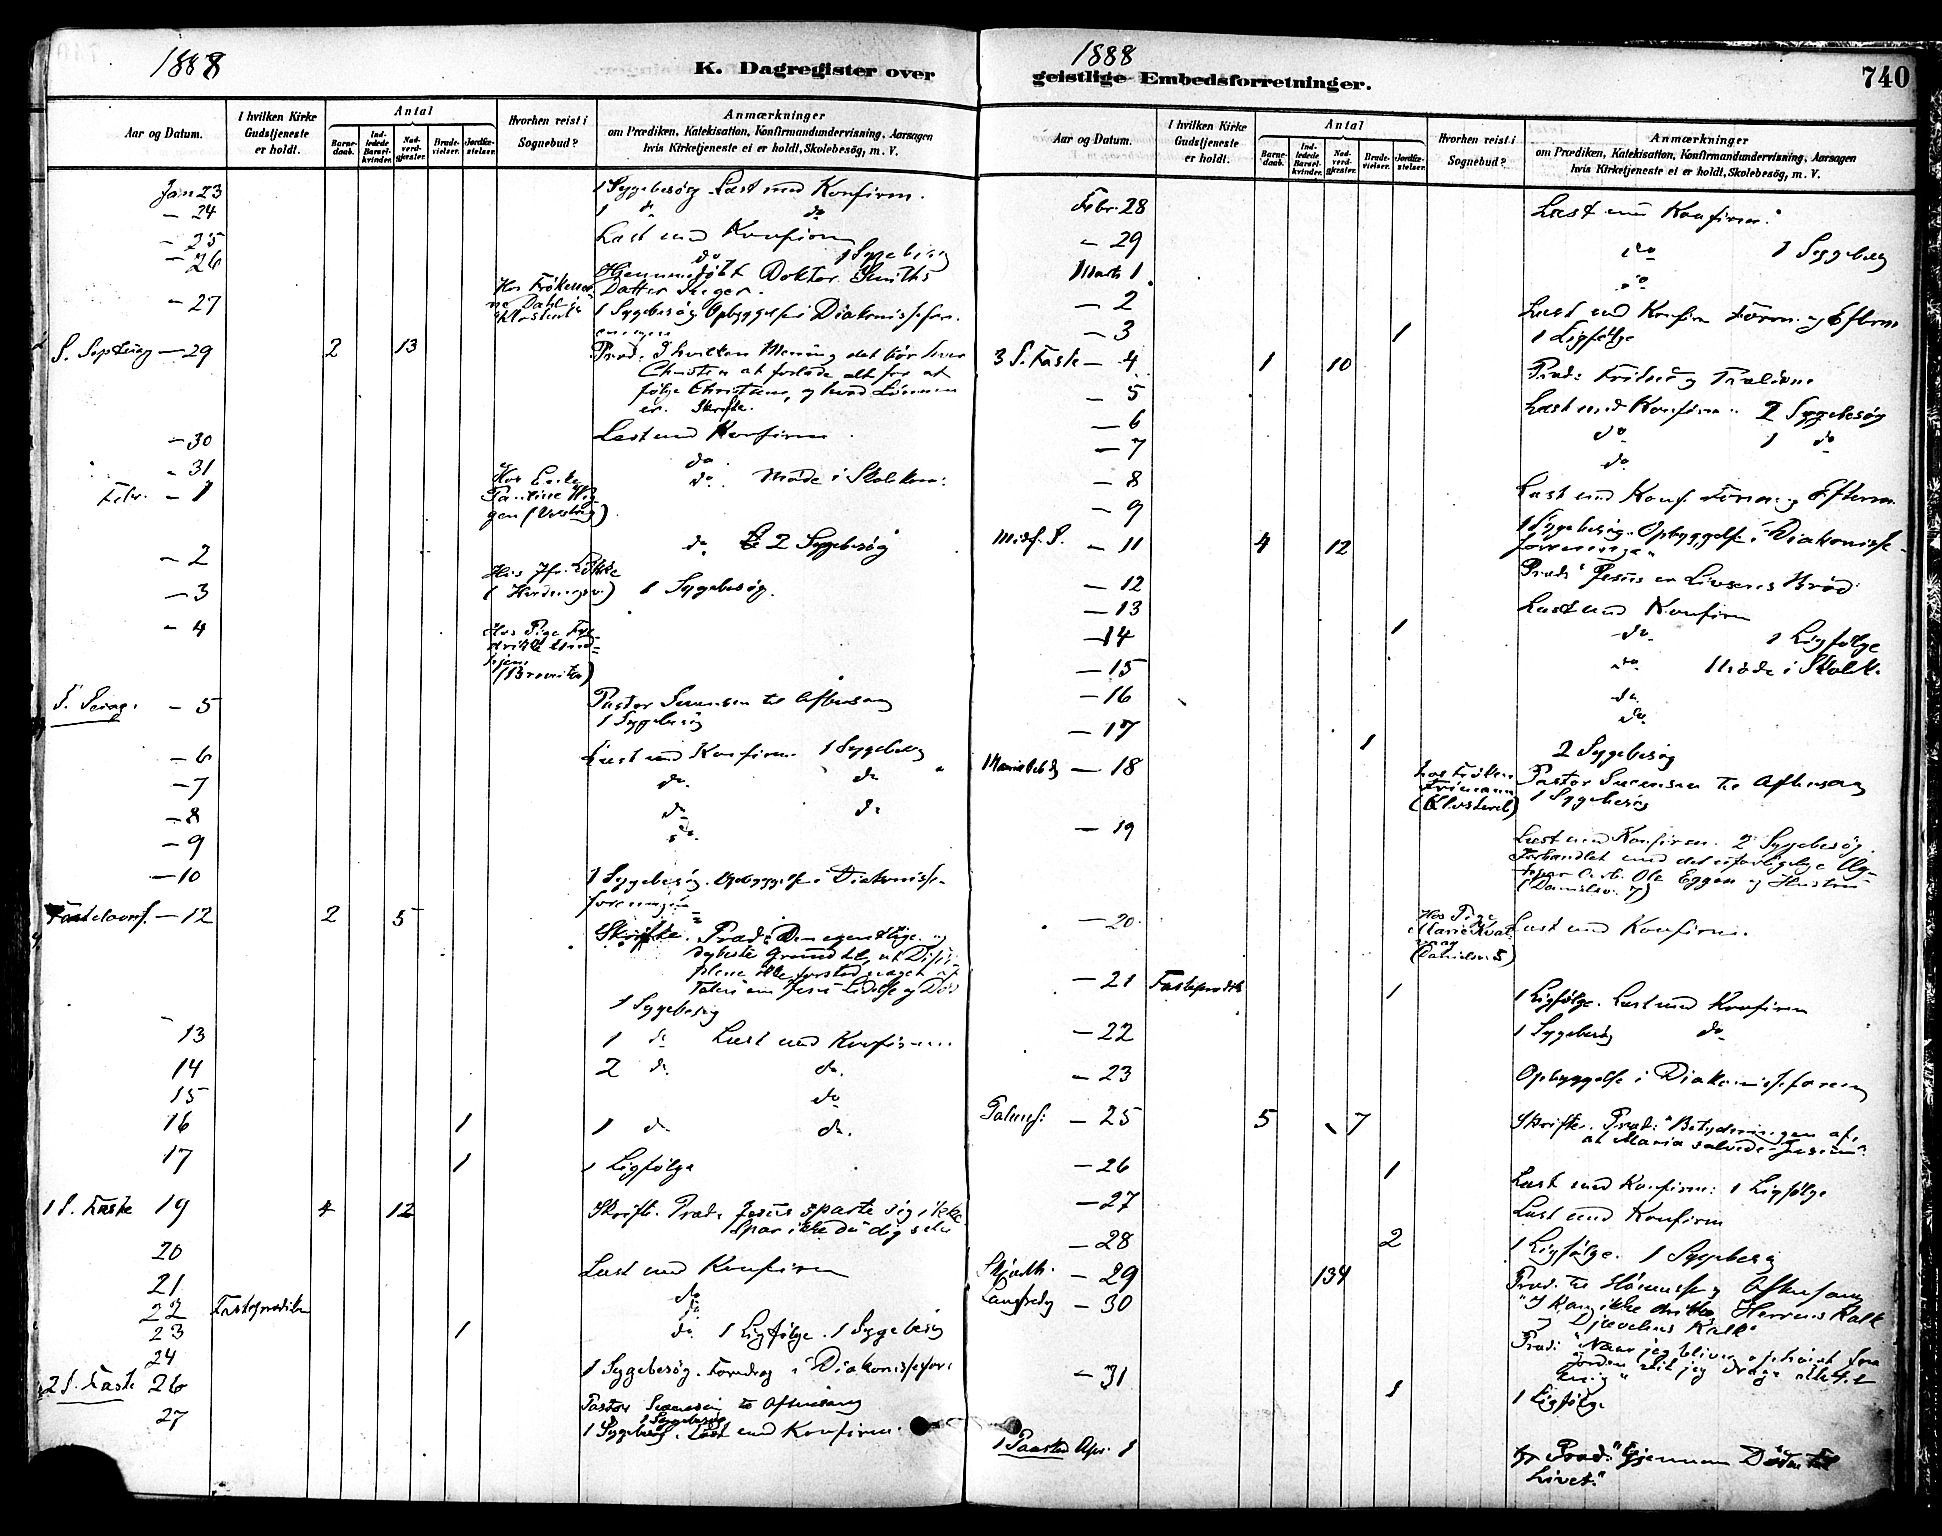 1888
K. Dagregister over
Aar og Datum.
I hvilken Kirke
Gudstjeneste
er holdt.
Antal
Barne-
daab.
Ind-
ledede
Barsel-
kvinder.
Nad-
verd-
gjester.
Brude-
vielser.
Jordfæ-
stelser.
Hvorhen reist i
Sognebud?
Anmærkninger
om Prædiken, Katekisation, Konfirmandundervisning, Aarsagen
hvis Kirketjeneste ei er holdt, Skolebesøg, m. V.
Jan 23 1 Sygebesøg Læst med Konfirm.
— 24 1 do do
— 25 Læst med Konfirm
— 26 do 1 Sygebesøg
Hjemmedøbt Doktor Smiths
Datter
— 27 1 Sygebesøg Opbyggelse i Diakonissefor-
eningen
S. Septuag — 29 2 13 Præd. I hvilken Mening det bør hver
Christen at forlade alt for at
følge Christum, og hvad Lønnen
er. Skrifte.
— 30 Læst med Konfirm.
— 31 do
Febr. — 1 do Møde i Skolekom.
— 2 do 2 Sygebesøg
— 3 1 Sygebesøg.
— 4
S. Sexag. — 5 Pastor Svensen til Aftensang
1 Sygebesøg
— 6 Læst med Konfirm. 1 Sygebesøg
— 7 do do
— 8 do do
— 9 do
— 10 1 Sygebesøg. Opbyggelse i Diakonisse-
foreningen
Fastelavns. — 12 2 5 Skrifte. Præd: Den egentlige og
dybeste Grund til, at Disci-
plene ikke forstod noget af
Talen om Jesu Lidelse og Død
1 Sygebesøg
13 1 do Læst med Konfirm
14 2 do do.
15 do
16 1 1 do do.
17 1 1 Ligfølge
1 S. Faste 19 4 12 Skrift. Præd. Jesus sparte sig ikke
Spar ikke du dig selv
20 Læst med Konfirm
21 do
22 Fasteprædiken do
23 1 do 1 Ligfølge. 1 Sygebesøg
24 1 Sygebesøg. Foredrag i Diakonissefor.
2 S. Faste 26 Pastor Svensen til Aftensang
1 Sygebesøg
27 1 Sygebesøg. Læst med Konfirm.
1888
geistlige Embedsforretninger.
740
Aar og Datum.
I hvilken Kirke
Gudstjeneste
er holdt.
Antal
Barne-
daab.
Ind-
ledede
Barsel-
kvinder.
Nad-
verd-
gjester.
Brude-
vielser.
Jordfæ-
stelser.
Hvorhen reist i
Sognebud?
Anmærkninger
om Prædiken, Katekisation, Konfirmandundervisning, Aarsagen
hvis Kirketjeneste ei er holdt, Skolebesøg, m. V.
Febr. 28 Læst med Konfirm.
— 29 do 1 Sygebesøg
Marts 1 do
— 2 Læst med Konfirm Form. og Efterm
— 3 1 1 Ligfølge
3 S. Faste — 4 1 10 Præd: Frihed og Trældom
— 5 Læst med Konfirm. 2 Sygebesøg
— 6 do 1 do
— 7 do
— 8 Læst med Konf. Form. og Efterm.
— 9 1 Sygebesøg. Opbyggelse i Diakonisse-
foreningen
Midf. S. — 11 4 12 Præd: Jesus er Livsens Brød.
— 12 Læst med Konfirm
— 13 do 1 Ligfølge
— 14 1 do Møde i Skolek.
— 15 do
— 16 do
— 17 1 2 Sygebesøg
— 18 Pastor Svensen til Aftensang
1 Sygebesøg
— 19 Læst med Konfirm. 2 Sygebesøg.
Forhandlet med det uforligelige Æg-
tepar Arb. Ole Eggen og Hustru
— 20 Læst med Konfirm.
— 21 Fasteprædik 1 1 Ligfølge. Læst med Konfirm
— 22 1 Sygebesøg do
— 23 Opbyggelse i Diakonisseforen
Palmes. — 25 5 7 Skrifte. Præd: "Betydningen af,
at Maria salvede Jesum".
— 26 1 Læst med Konfirm: 1 Ligfølge
— 27 Læst med Konfirm
— 28 2 1 Ligfølge. 1 Sygebesøg
Skjærth. — 29 134 Præd. til Høimesse og Aftensang
"I kan ikke drikke Herrens Kalk
og Djævelens Kalk"
Langfredg — 30 Præd: "Naar jeg bliver ophøiet fra
Jorden vil jeg drage alle til
mig"
— 31 1 1 Ligfølge
1 Paaskd Apr. 1 Præd: "Gjennem Døden til
Livet."